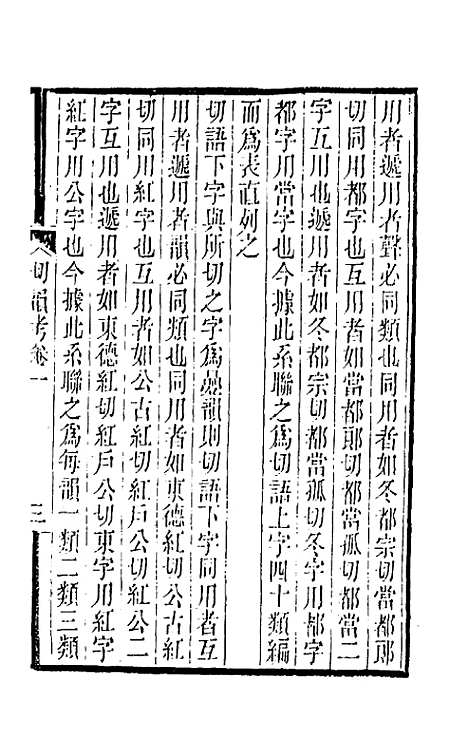 用者遞用者聲必同類也同用者如冬都宗切當都郎
切同用都字也互用者如當都郎切都當孤切都當二
字互用也遞用者如冬都宗切都當孤切冬字用都字
都字用當字也今據此系聯之爲切語上字四十類編
而爲表直列之
切語下字與所切之字爲疊韻則切語下字同用者互
用者遞用者韻必同類也同用者如東德紅切公古紅
切同用紅字也互用者如公古紅切紅戶公切紅公二
字互用也遞用者如東德紅切紅戶公切東字用紅字
紅字用公字也今據此系聯之爲每韻一類二類三類
切韻考卷一
三